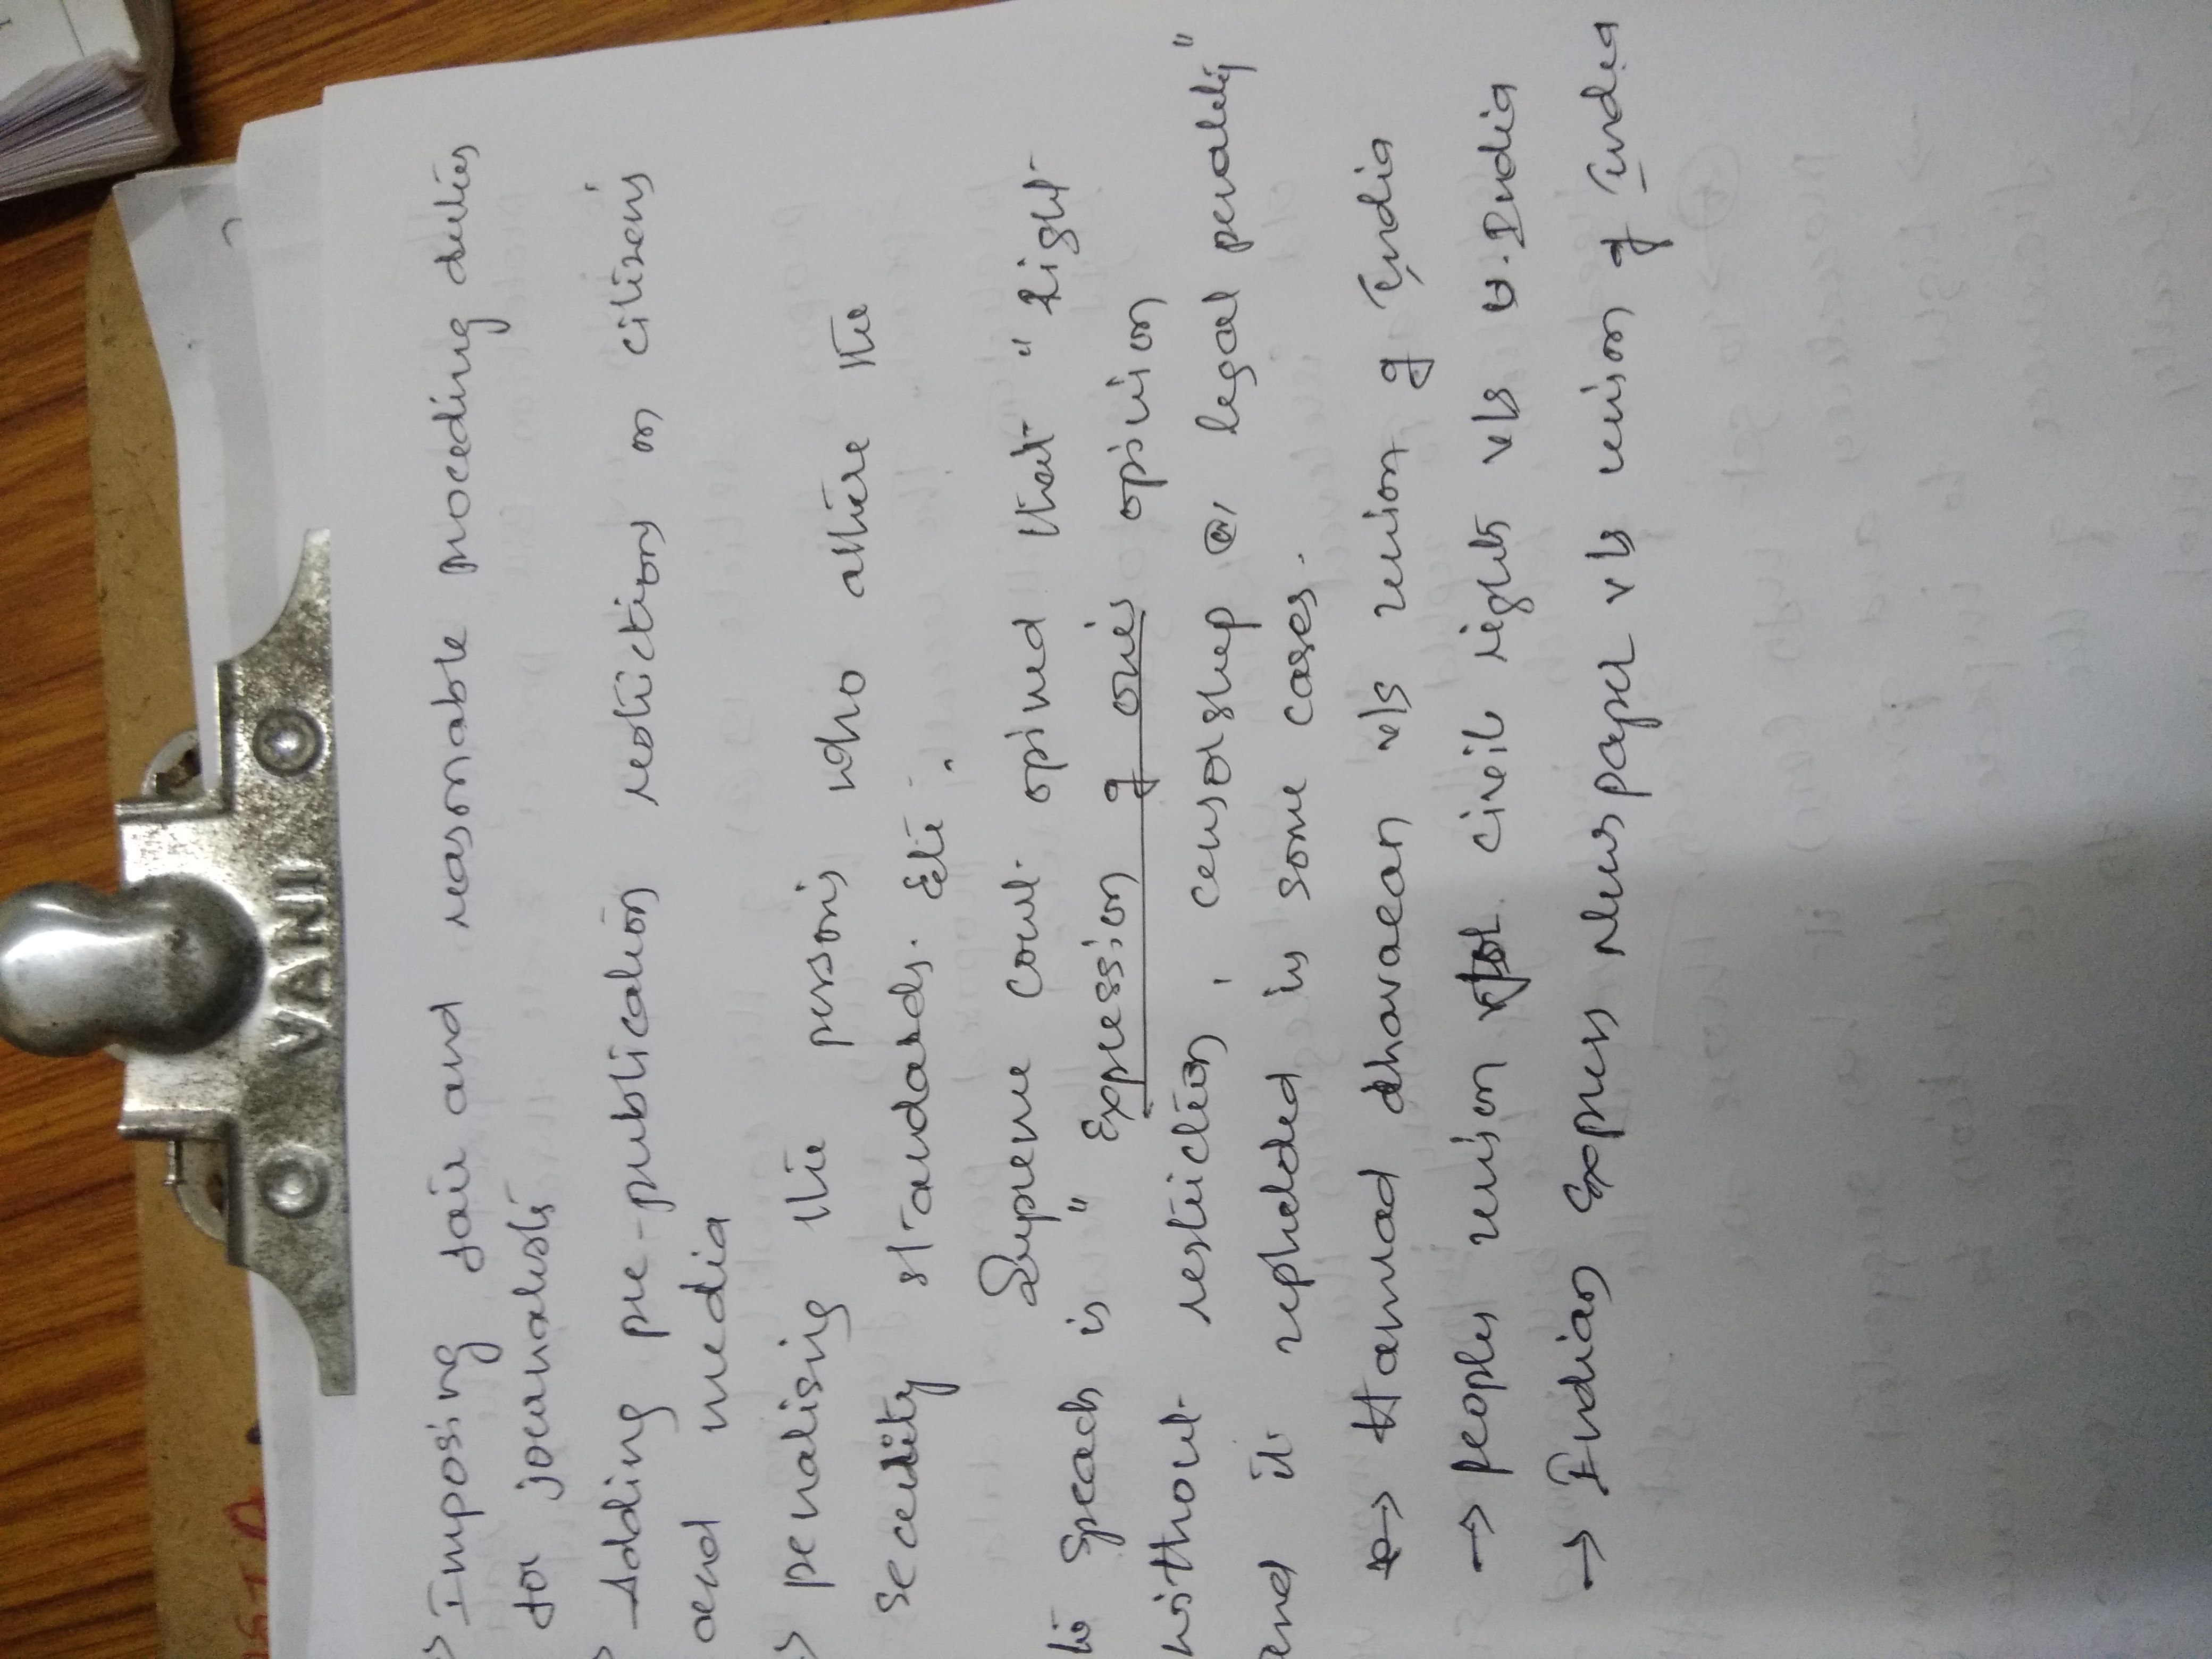 → Imposing fair and reasonable proceding duties
for jounalists
→ Adding pre-publication restictions on citizens
and media
→ penalising the persons who attire the
secutity standards. Etc.
Supreme court opined that "right
to Speach is "Expression of ones opinion
without restiction, censorship @ legal penality"
and it uphelded in some cases.
→ Hamad dhavaean v/s union of India
→ peoples union for civil rights v/s U.India
→ Indian Express Newspaper v/s union of India
VANI